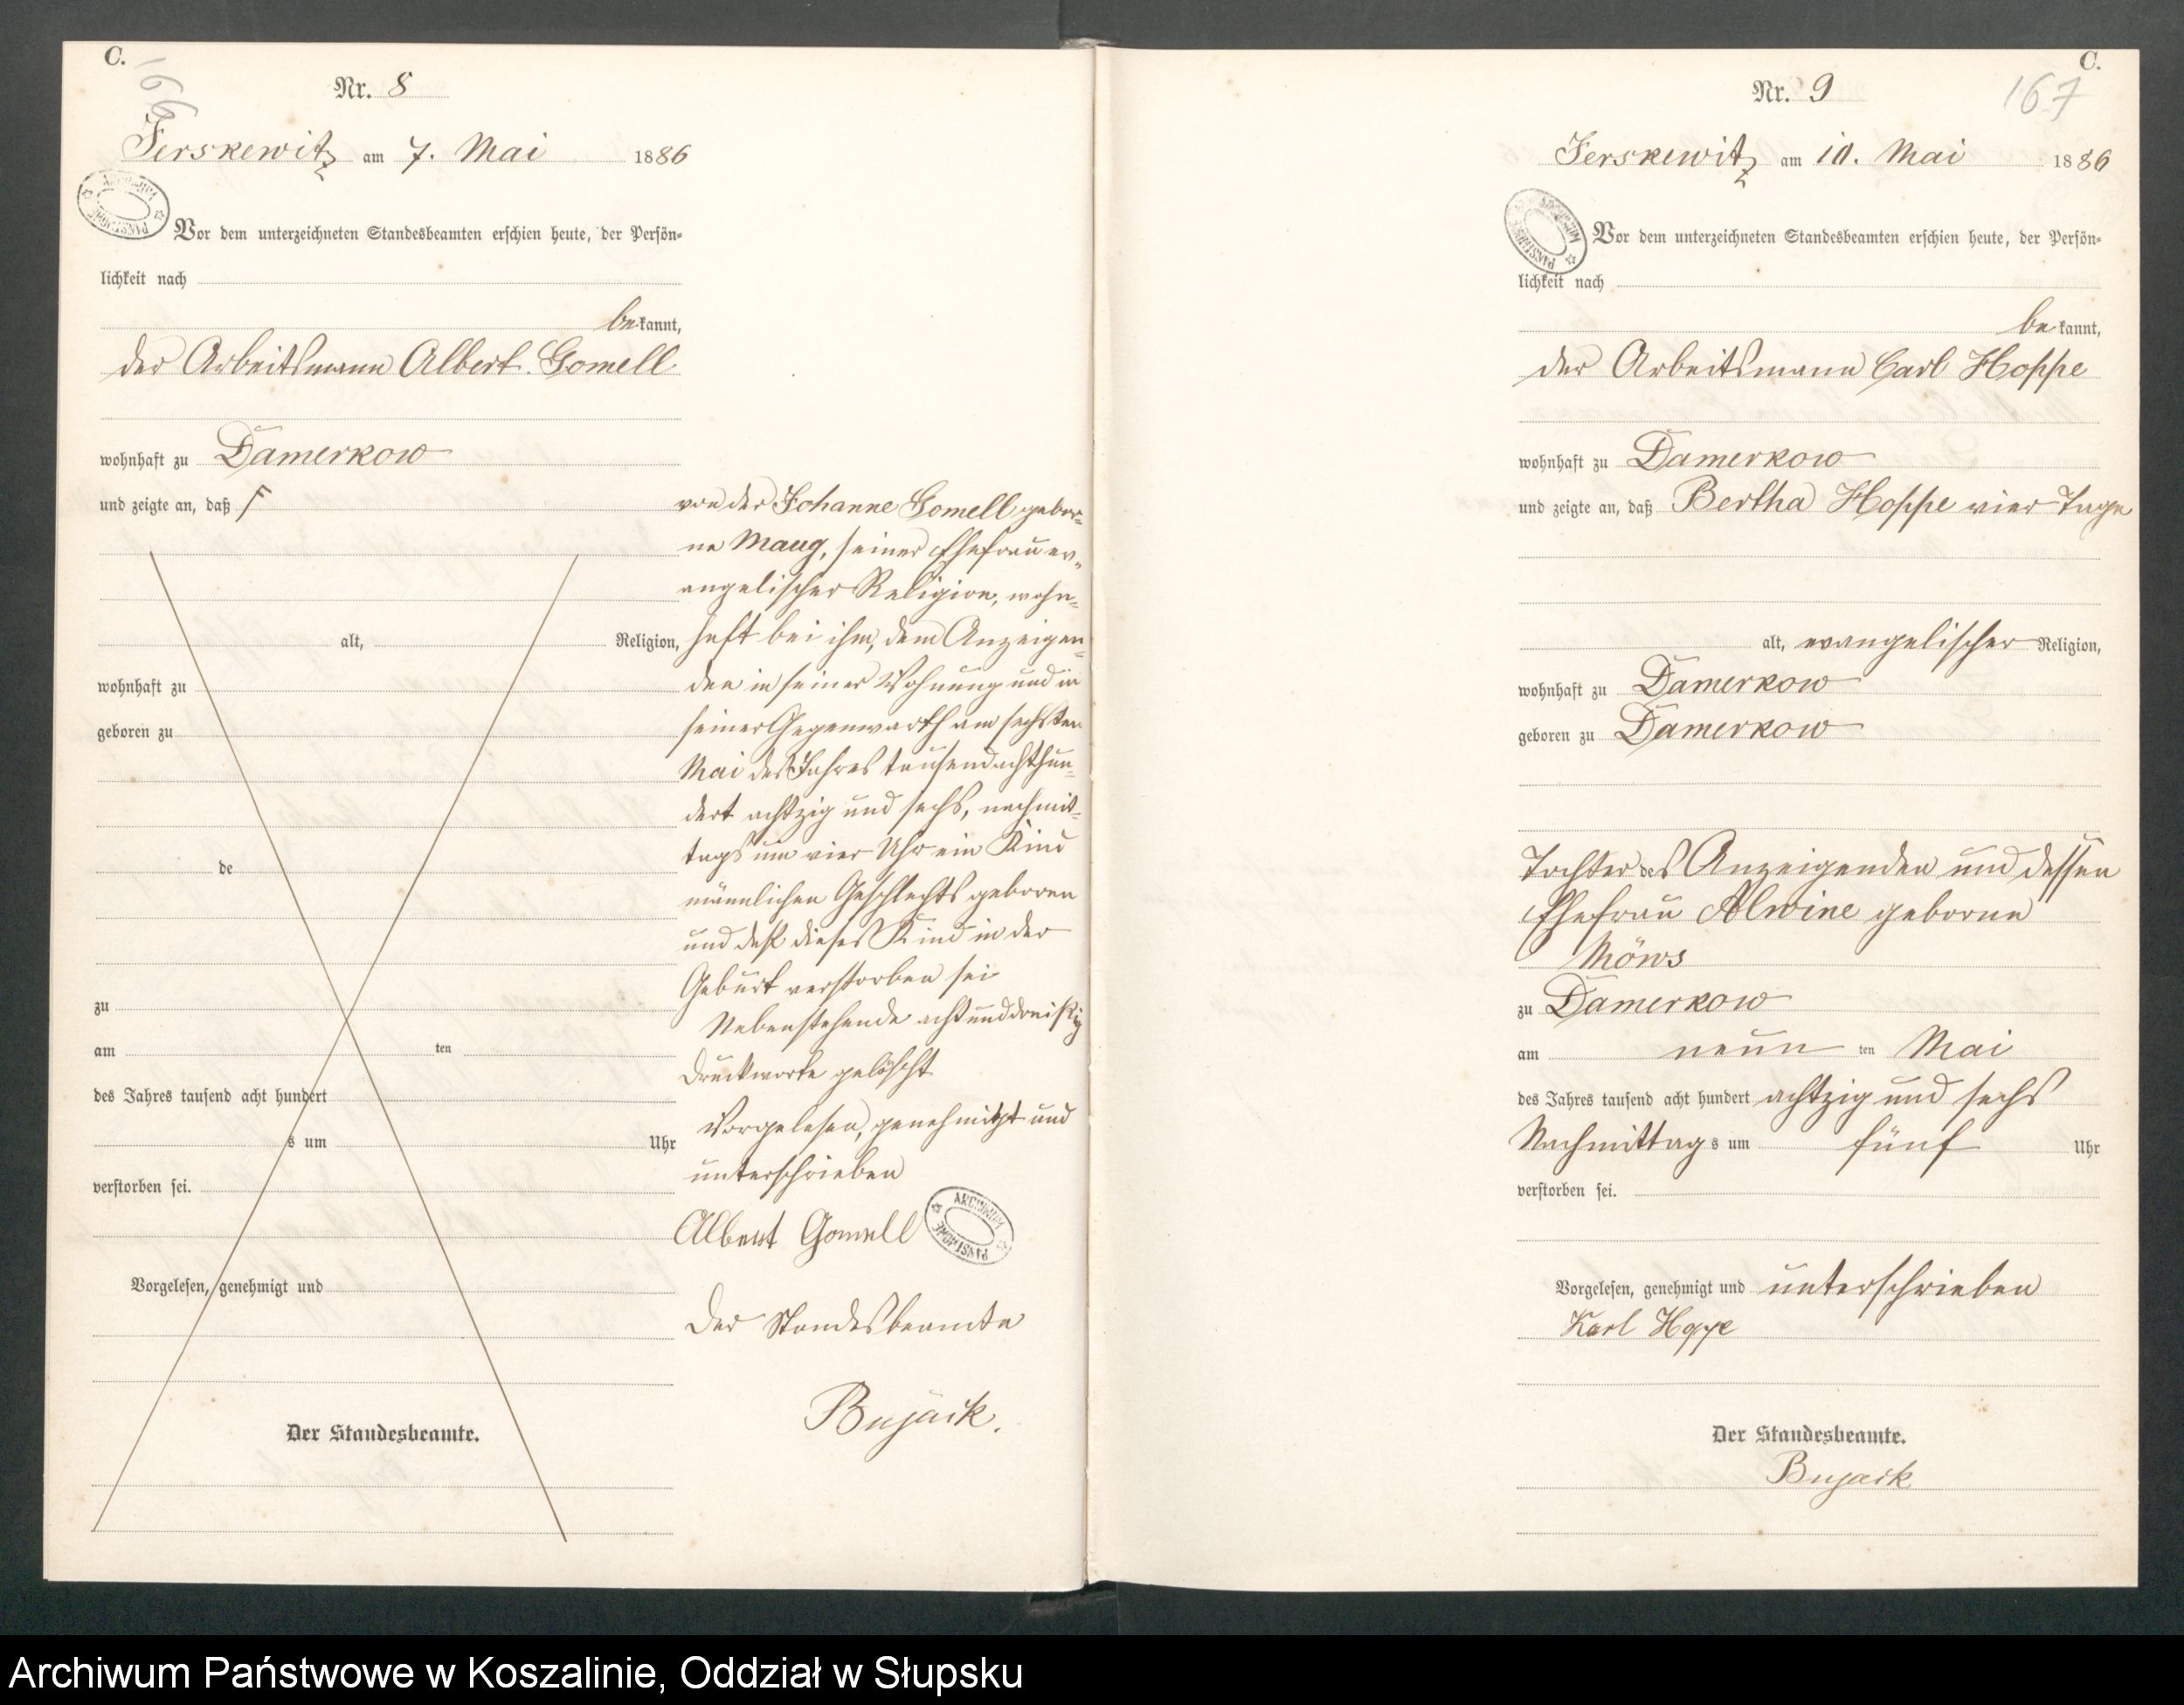 C.
166
Nr. 8
Jerskewitz am 7. Mai 1886
ARCHIWUM PAŃSTWOWE
Vor dem unterzeichneten Standesbeamten erschien heute, der Persön-
lichkeit nach
bekannt,
der Arbeitsmann Albert Gomell
wohnhaft zu Damerkow
und zeigte an, daß
alt, Religion,
wohnhaft zu
geboren zu
de
zu
am ten
des Jahres tausend acht hundert
s um Uhr
verstorben sei.
Vorgelesen, genehmigt und
Der Standesbeamte.
von der Johanne Gomell gebor-
ne Maug, seiner Ehefrau ev-
angelischer Religion, wohn-
haft bei ihm, dem Anzeigen-
den in seiner Wohnung und in
seiner Gegenwarth am sechsten
Mai des Jahres tausend achthun-
dert achtzig und sechs, nachmit-
tags um vier Uhr ein Kind
männlichen Geschlechts geboren
und daß dieses Kind in der
Geburt verstorben sei
Nebenstehende achtunddreißig
Druckworte gelöscht
Vorgelesen, genehmigt und
unterschrieben
Albert Gomell
ARCHIWUM PAŃSTWOWE
Der Standesbeamte
Bujack.
C.
167
Nr. 9
Jerskewitz am 10. Mai 1886
ARCHIWUM PAŃSTWOWE
Vor dem unterzeichneten Standesbeamten erschien heute, der Persön-
lichkeit nach
bekannt,
der Arbeitsmann Carl Hoppe
wohnhaft zu Damerkow
und zeigte an, daß Bertha Hoppe vier Tage
alt, evangelischer Religion,
wohnhaft zu Damerkow
geboren zu Damerkow
Tochter des Anzeigenden und dessen
Ehefrau Alwine geborne
Möws
zu Damerkow
am neun ten Mai
des Jahres tausend acht hundert achtzig und sechs
Nachmittags um fünf Uhr
verstorben sei.
Vorgelesen, genehmigt und unterschrieben
Karl Hoppe
Der Standesbeamte.
Bujack
Archiwum Państwowe w Koszalinie, Oddział w Słupsku